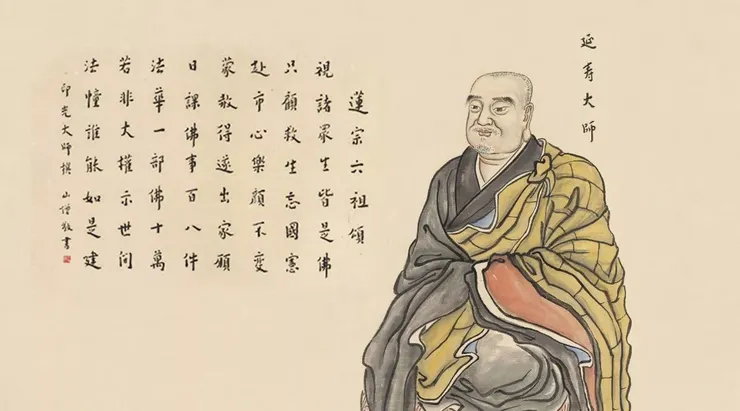 延寿大師
蓮宗六祖頌
視諸眾生皆是佛
只顧救生忘國憲
赴市心樂顏不變
蒙赦得遂出家願
日課佛事百八件
法華一部佛十萬
若非大權示世間
法幢誰能如是建
印光大師撰 山僧敬書